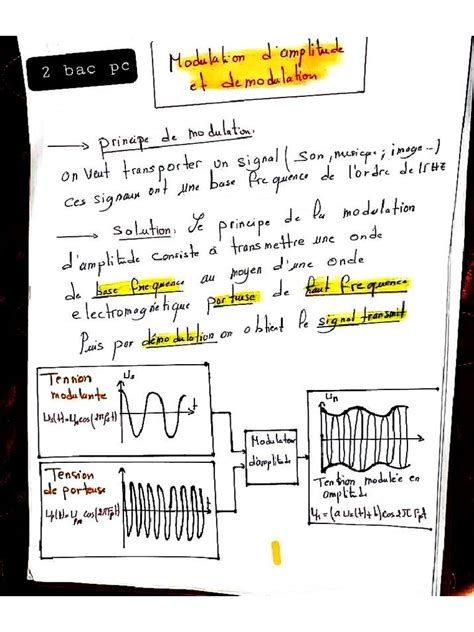 2 bac pc
Modulation d'amplitude
et demodulation
→ principe de modulation.
on veut transporter un signal (son, musique; image...)
ces signaux ont une base frequence de l'ordre de 1kHz
→ Solution. le principe de la modulation
d'amplitude consiste à transmettre une onde
de base frequence au moyen d'une onde
electromagnétique porteuse de haut frequence
Puis par démodulation on obtient le signal transmit
Tension
modulante
Us
t
Tension
de porteuse
Modulateur
d'amplitude
Um
Tension modulée en
amplitude
1